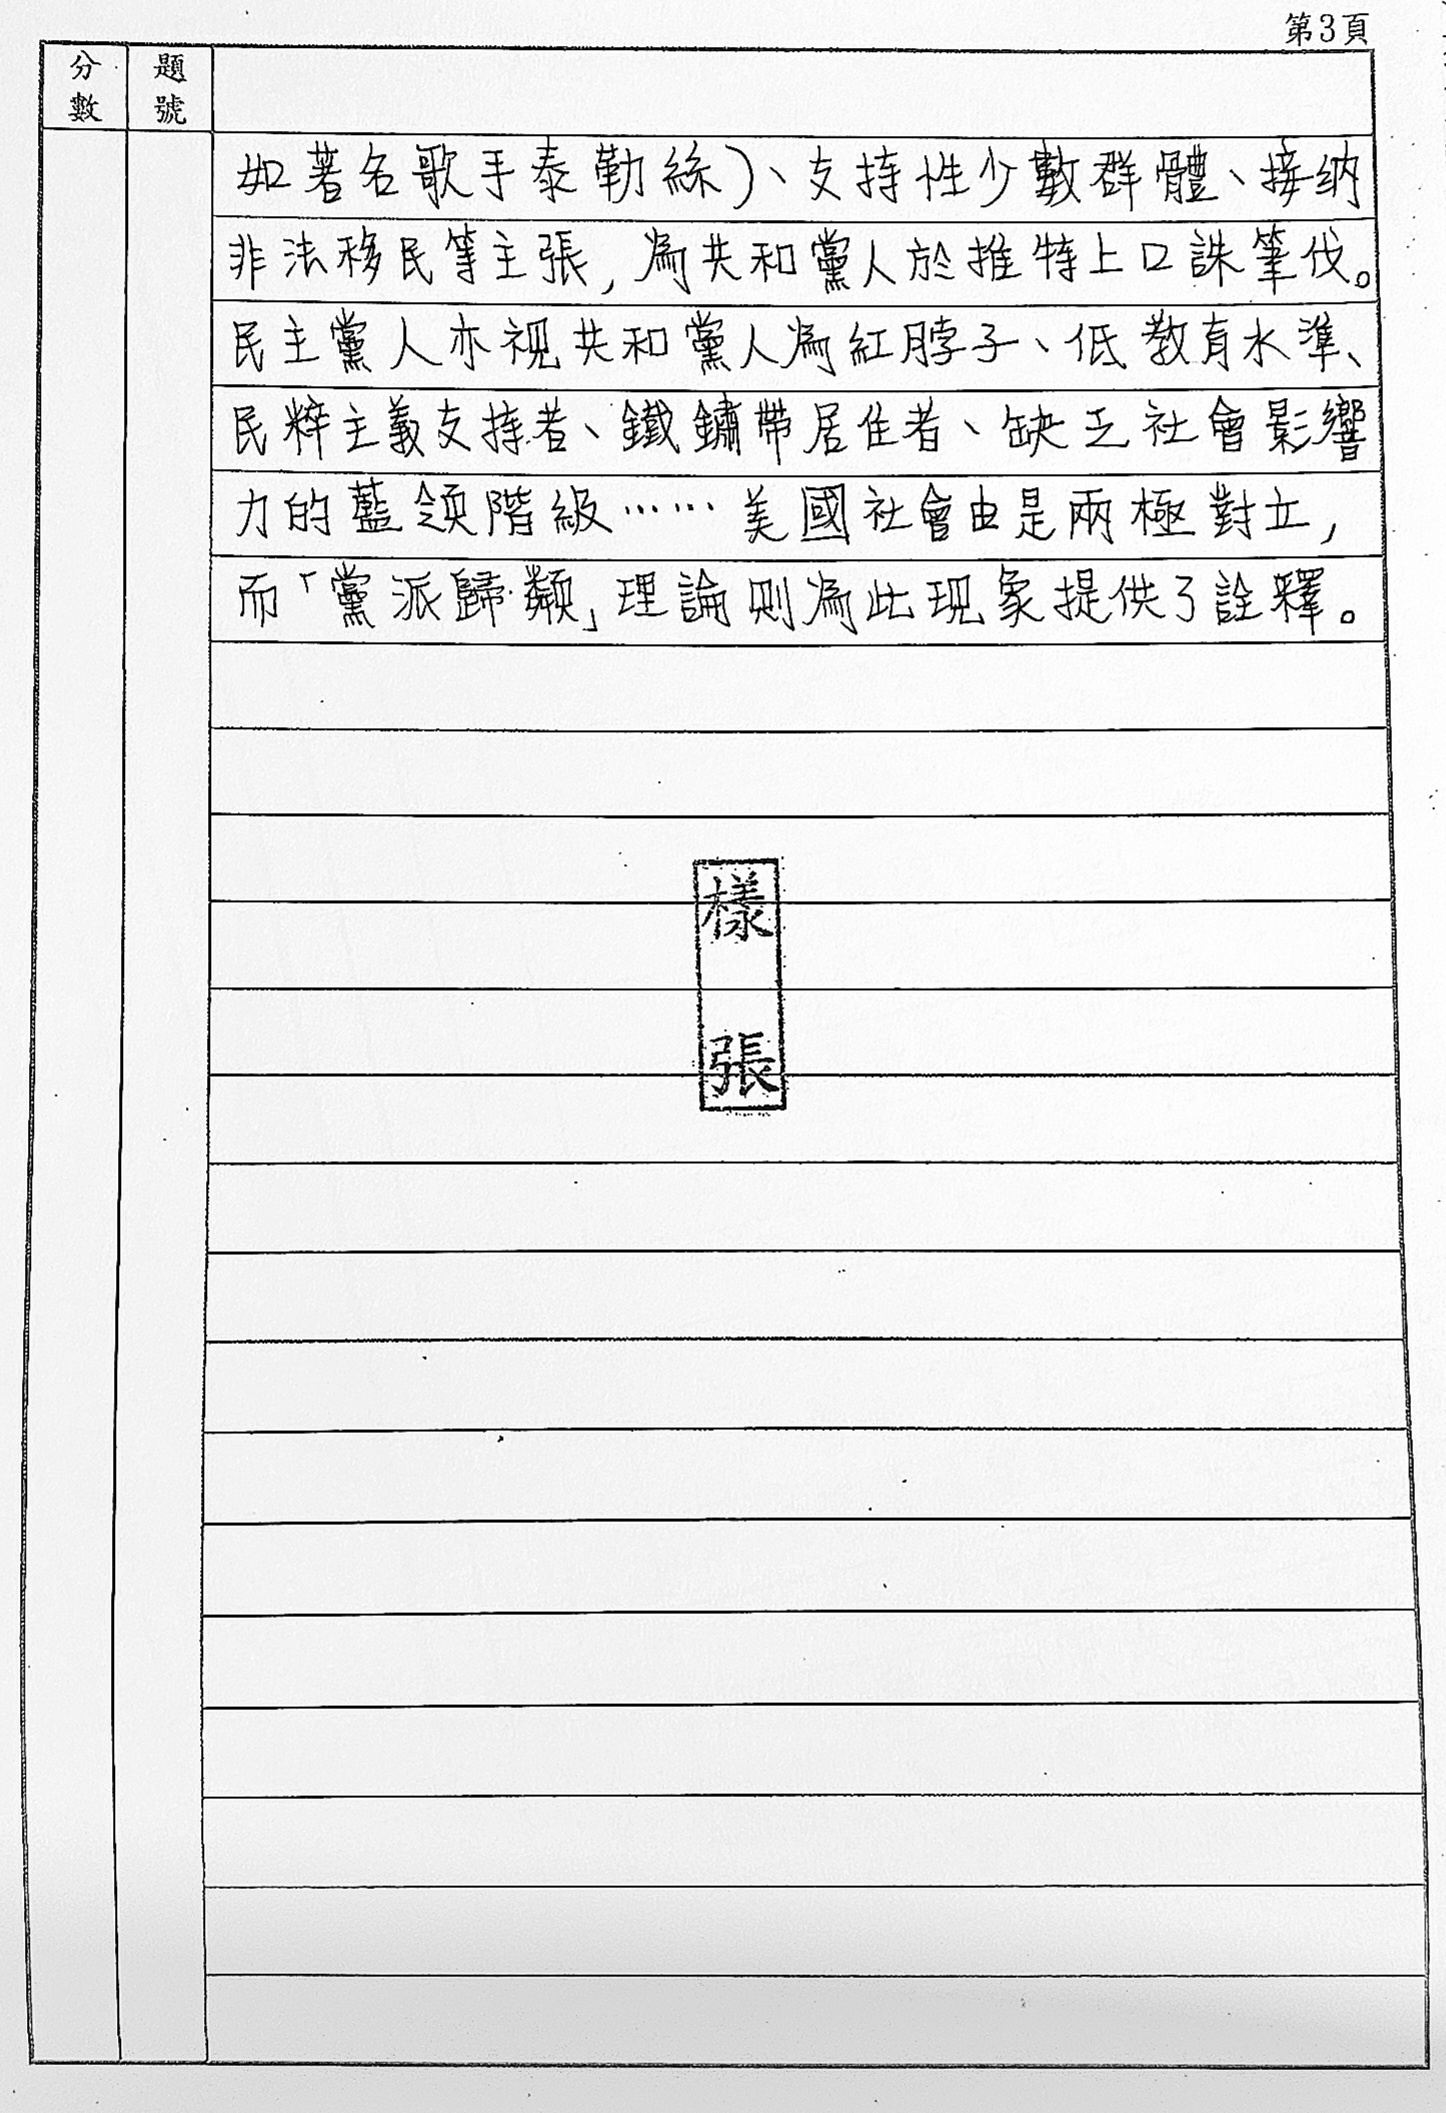 第3頁
分數
題號
如著名歌手泰勒絲)、支持性少數群體、接納
非法移民等主張,為共和黨人於推特上口誅筆伐。
民主黨人亦視共和黨人為紅脖子、低教育水準、
民粹主義支持者、鐵鏽帶居住者、缺乏社會影響
力的藍領階級……美國社會由是兩極對立,
而「黨派歸類」理論則為此現象提供了詮釋。
樣張